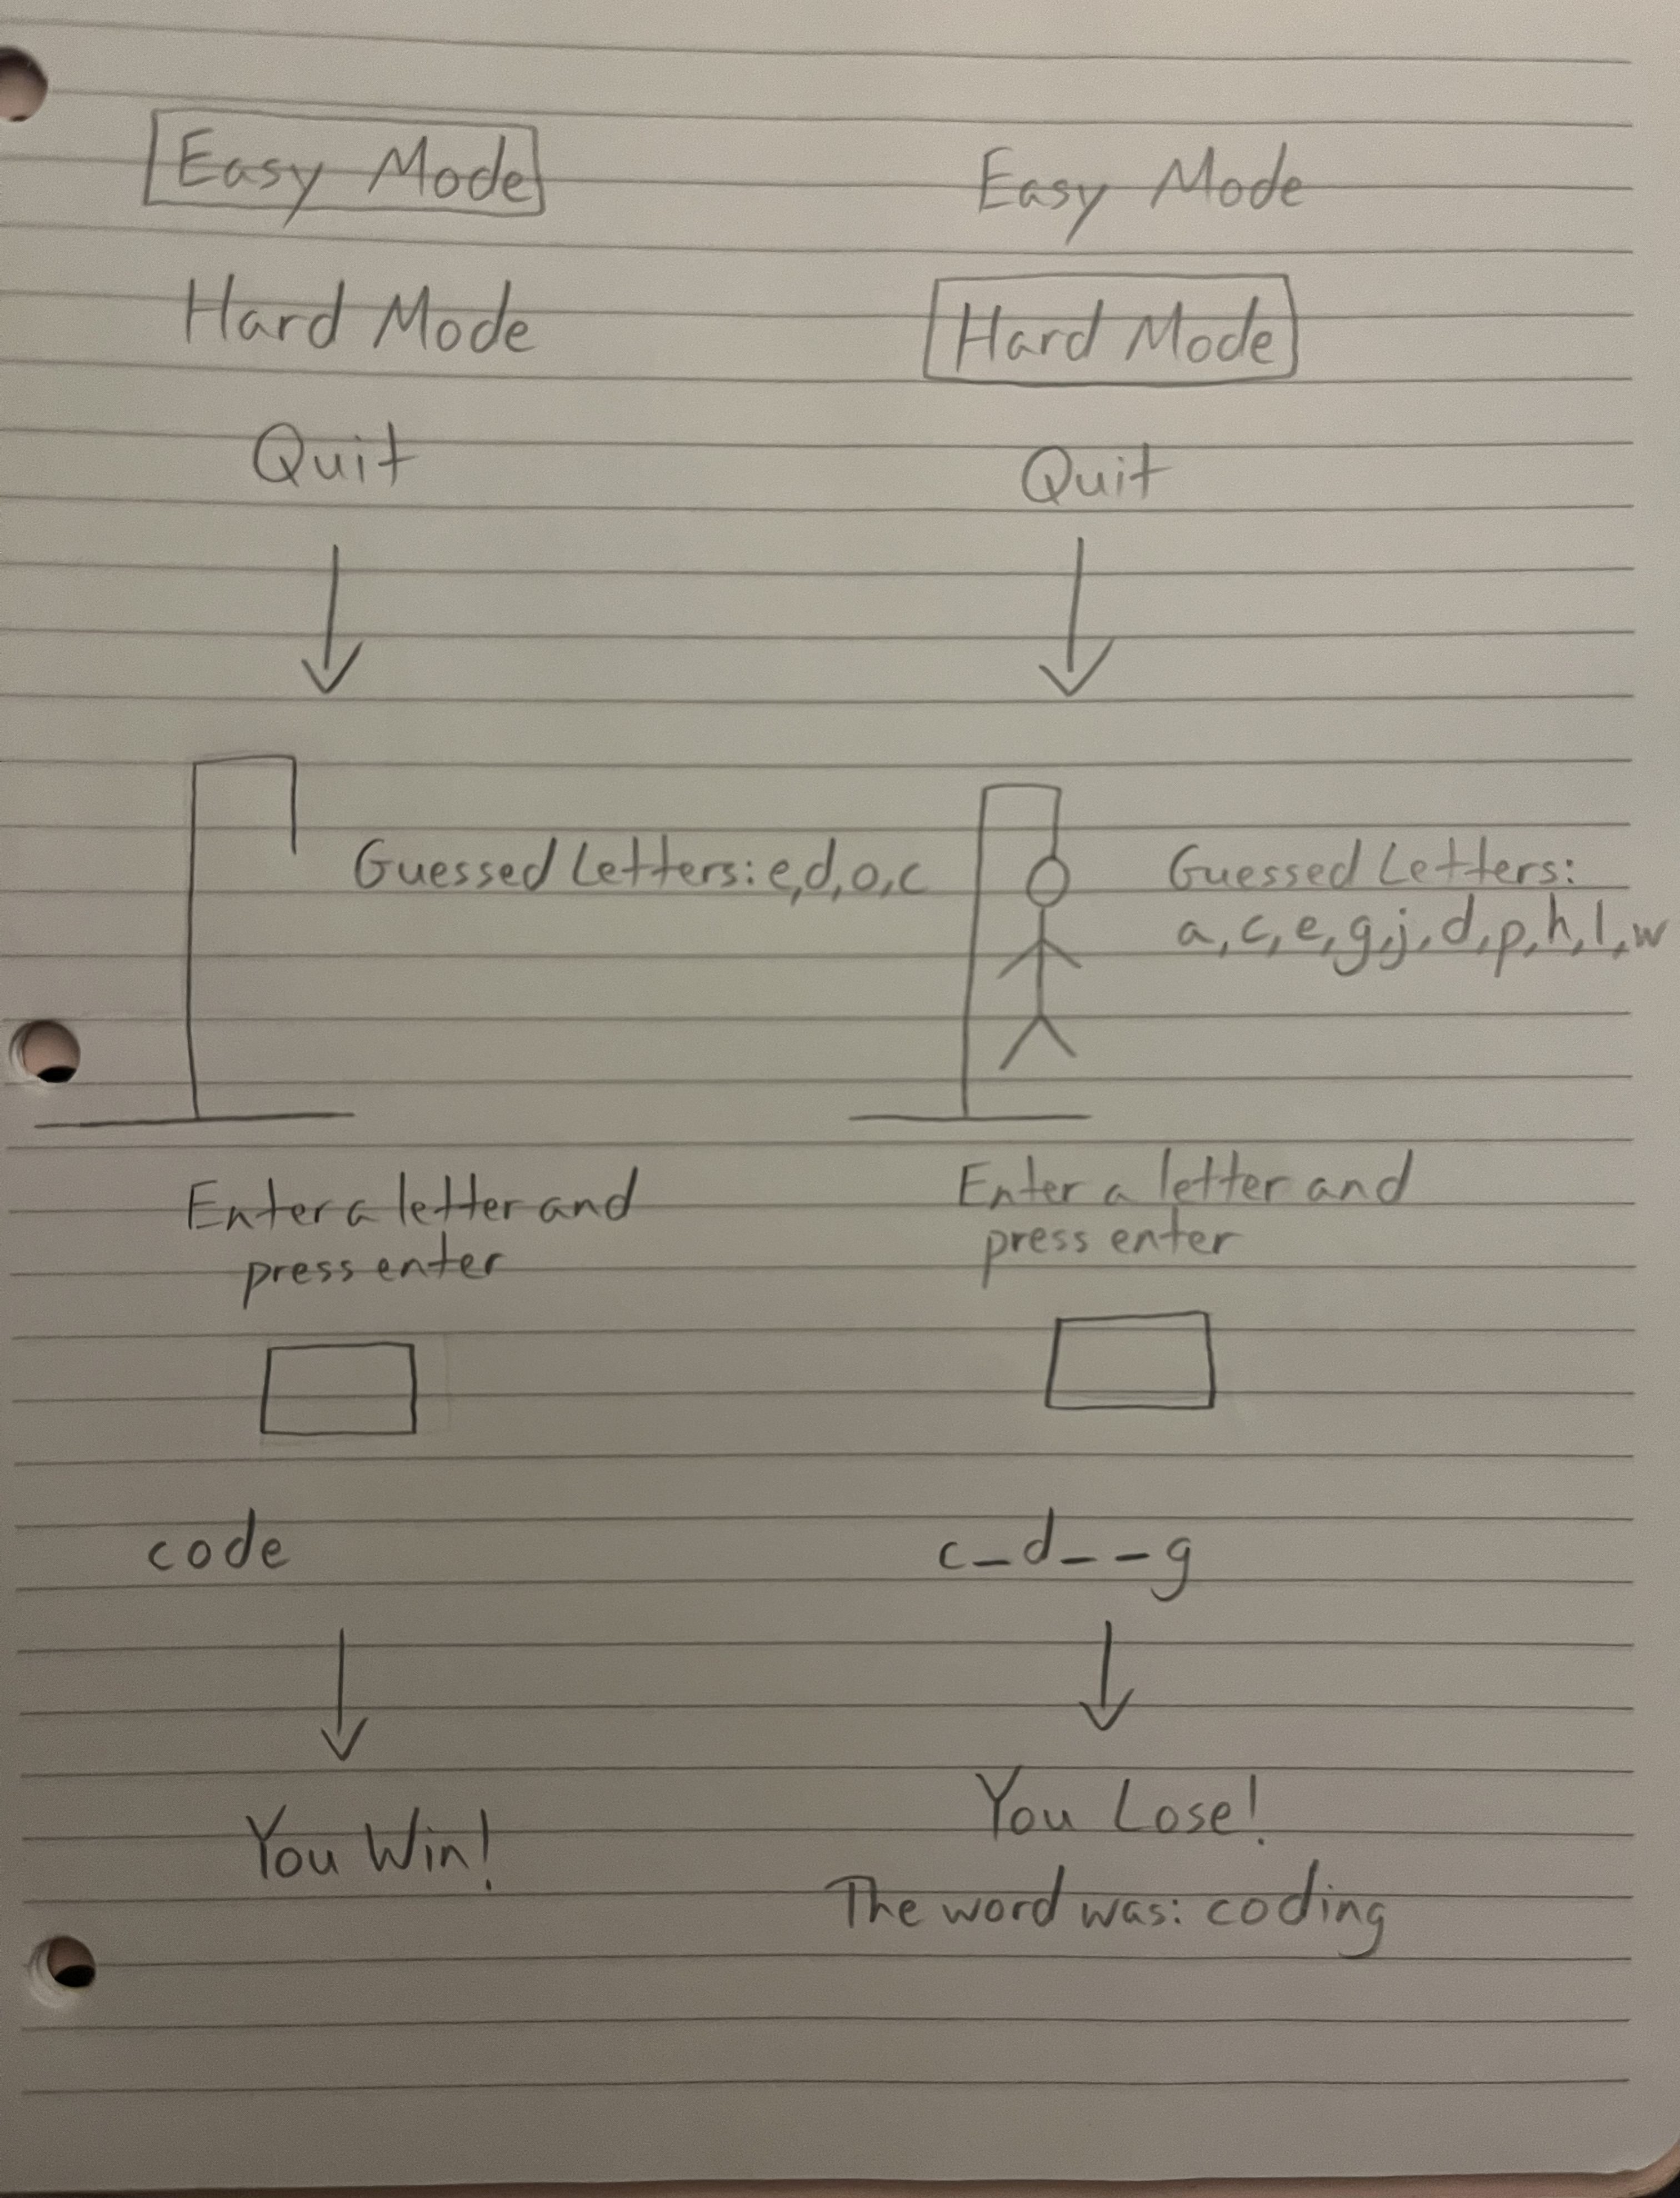 Easy Mode
Hard Mode
Quit
Guessed Letters: e,d,o,c
Enter a letter and
press enter
code
You Win!
Easy Mode
Hard Mode
Quit
Guessed Letters:
a,c,e,g,j,d,p,h,l,w
Enter a letter and
press enter
c_d__g
You Lose!
The word was: coding